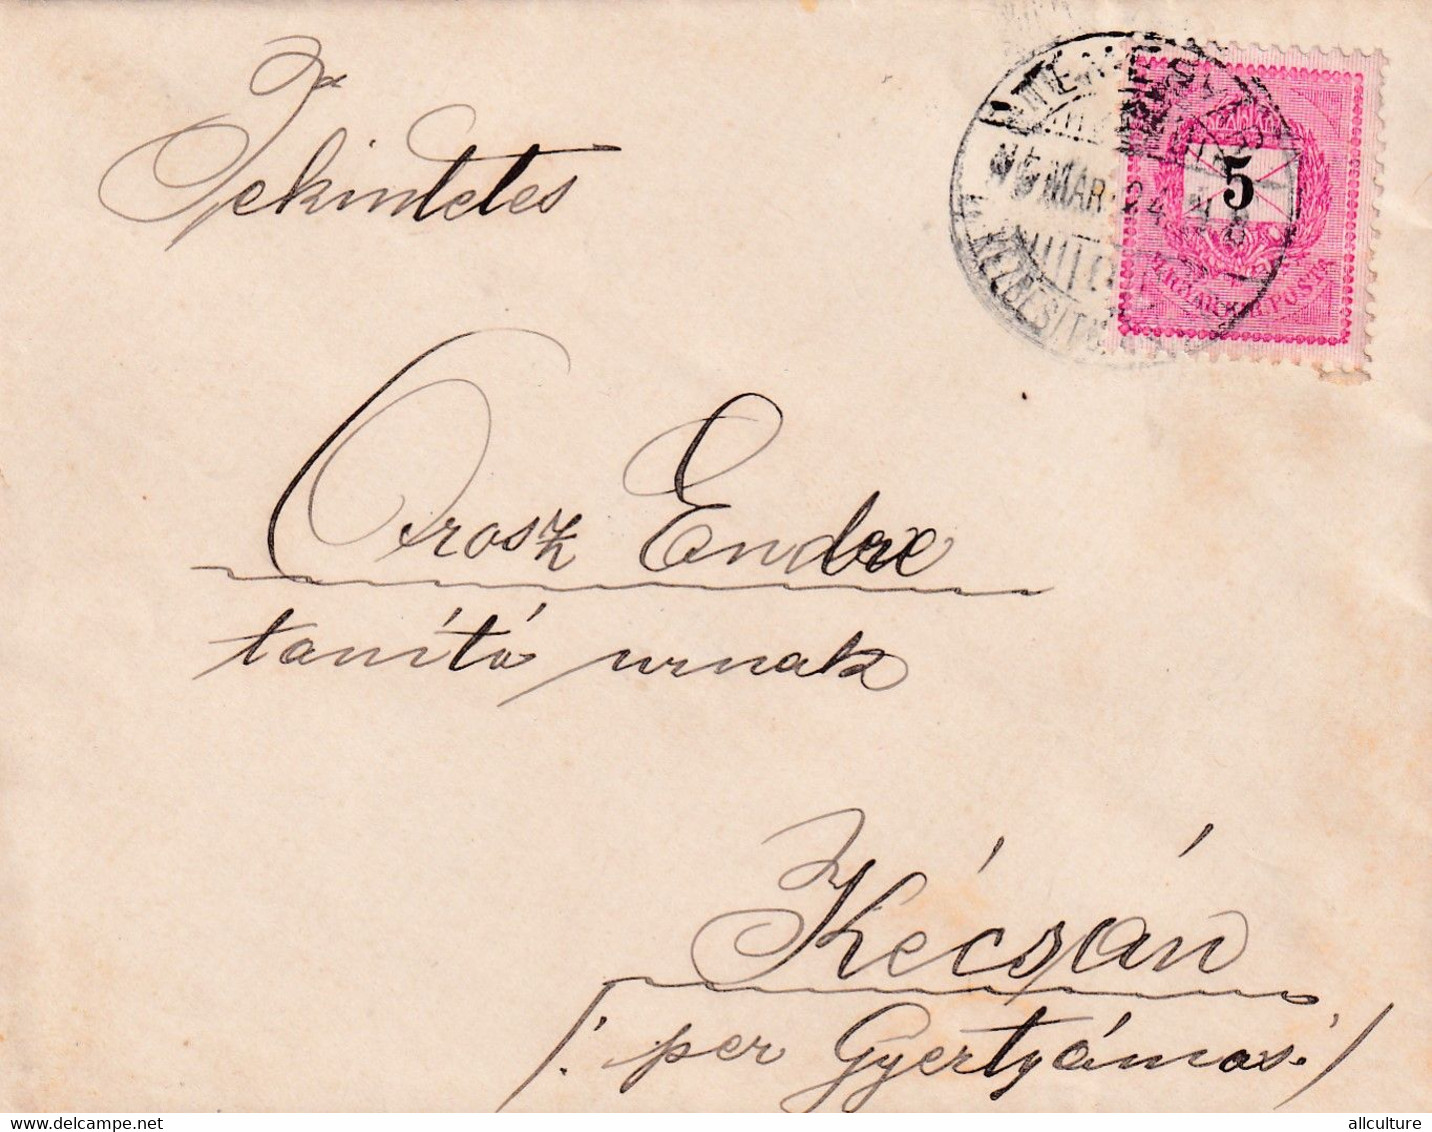 Tekintetes
5
MAGYAR KIR. POSTA
MAR. 24
KÉZBESITŐ
Orosz Endre
tanító urnak
Kécsán
/: per Gyertyámos :/
allculture